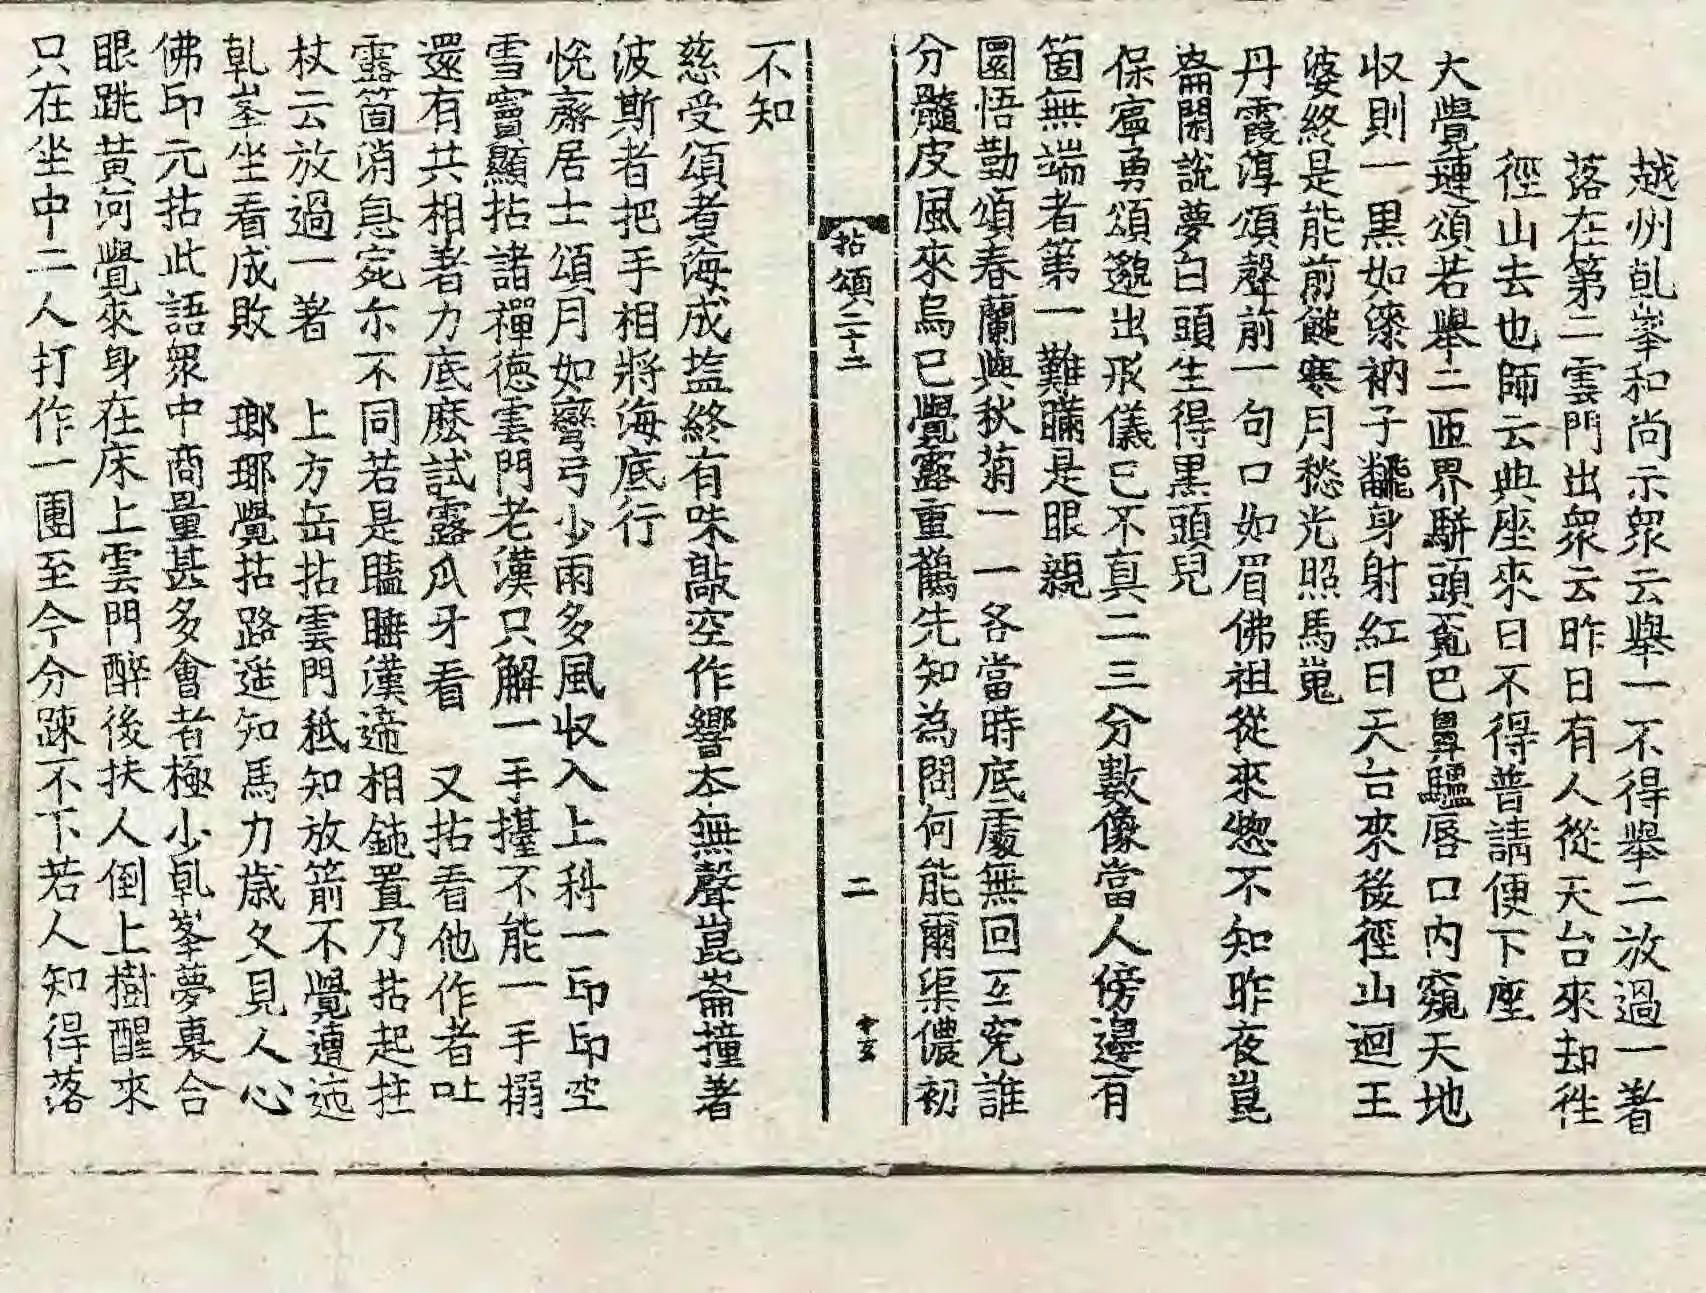 越州乹峯和尚示衆云舉一不得舉二放過一著
落在第二雲門出衆云昨日有人從天台來却徃
徑山去也師云典座來日不得普請便下座
大覺璉頌若舉二匝界駢頭覔巴鼻驢唇口內窺天地
収則一黒如漆衲子飜身射紅日天台來後徑山迴王
婆終是能前饐寒月愁光照馬嵬
丹霞淳頌聲前一句口如眉佛祖從來惣不知昨夜崑
崙閑說夢白頭生得黒頭兒
保寧勇頌邈出形儀已不真二三分數像當人傍邊有
箇無端者第一難瞞是眼親
圜悟勤頌春蘭與秋菊一一各當時底處無回互究誰
分髓皮風來烏已覺露重鶴先知為問何能爾渠儂初
拈頌二十二
二
不知
慈受頌煮海成盐終有味敲空作響本無聲崑崙撞著
波斯者把手相將海底行
恱齋居士頌月如彎弓少雨多風収入上科一印印空
雪竇顯拈諸禪德雲門老漢只解一手擡不能一手搦
還有共相著力底麽試露爪牙看 又拈看他作者吐
露箇消息宛尒不同若是瞌睡漢諦相鈍置乃拈起拄
杖云放過一著 上方岳拈雲門秪知放箭不覺遭迯
乹峯坐看成敗 瑯瑘覺拈路遥知馬力歲久見人心
佛印元拈此語衆中商量甚多會者極少乹峯夢裏合
眼跳黄河覺來身在床上雲門醉後扶人倒上樹醒來
只在坐中二人打作一團至今分踈不下若人知得落